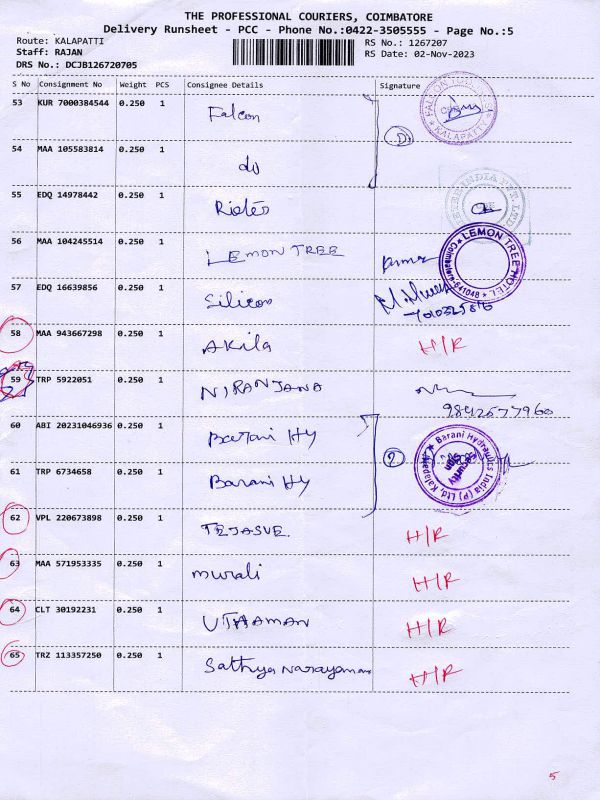 THE PROFESSIONAL COURIERS, COIMBATORE
Delivery Runsheet - PCC - Phone No.:0422-3505555 - Page No.:5
Route: KALAPATTI
Staff: RAJAN
DRS No.: DCJB126720705
RS No.: 1267207
RS Date: 02-Nov-2023
S No Consignment No Weight PCS Consignee Details Signature
53 KUR 7000384544 0.250 1 Falcon
KALAPATTI
54 MAA 105583814 0.250 1 do
55 EDQ 14978442 0.250 1
56 MAA 104245514 0.250 1 LEMON TREE
LEMON TREE HOTEL
Coimbatore-641048
57 EDQ 16639856 0.250 1 Silicon
58 MAA 943667298 0.250 1 Akila H/R
59 TRP 5922051 0.250 1 NIRANJANA
9842577960
60 ABI 20231046936 0.250 1 Barani Hy
Barani Hydraulics India (P) Ltd, Kalapatti
61 TRP 6734658 0.250 1 Barani Hy
62 VPL 220673898 0.250 1 TEJASVE. H/R
63 MAA 571953335 0.250 1 murali H/R
64 CLT 30192231 0.250 1 UTHAMAN H/R
65 TRZ 113357250 0.250 1 Sathya Narayanan H/R
5